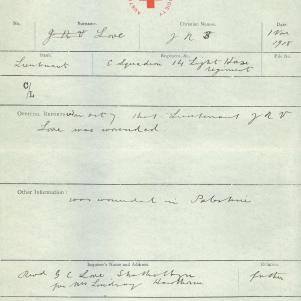 No. Surname. Christian Names. Date.
J R V Love J R 1 Nov
1918
Rank. Regiment, &c. File No.
Lieutenant C Squadron 14 Light Horse
regiment
C/L
OFFICIAL REPORTS that Lieutenant J R V
Love was wounded
Other Information:
was wounded in Palestine
Inquirer's Name and Address. Relation.
Revd G C Love father
Mrs Lindsay Hawthorn